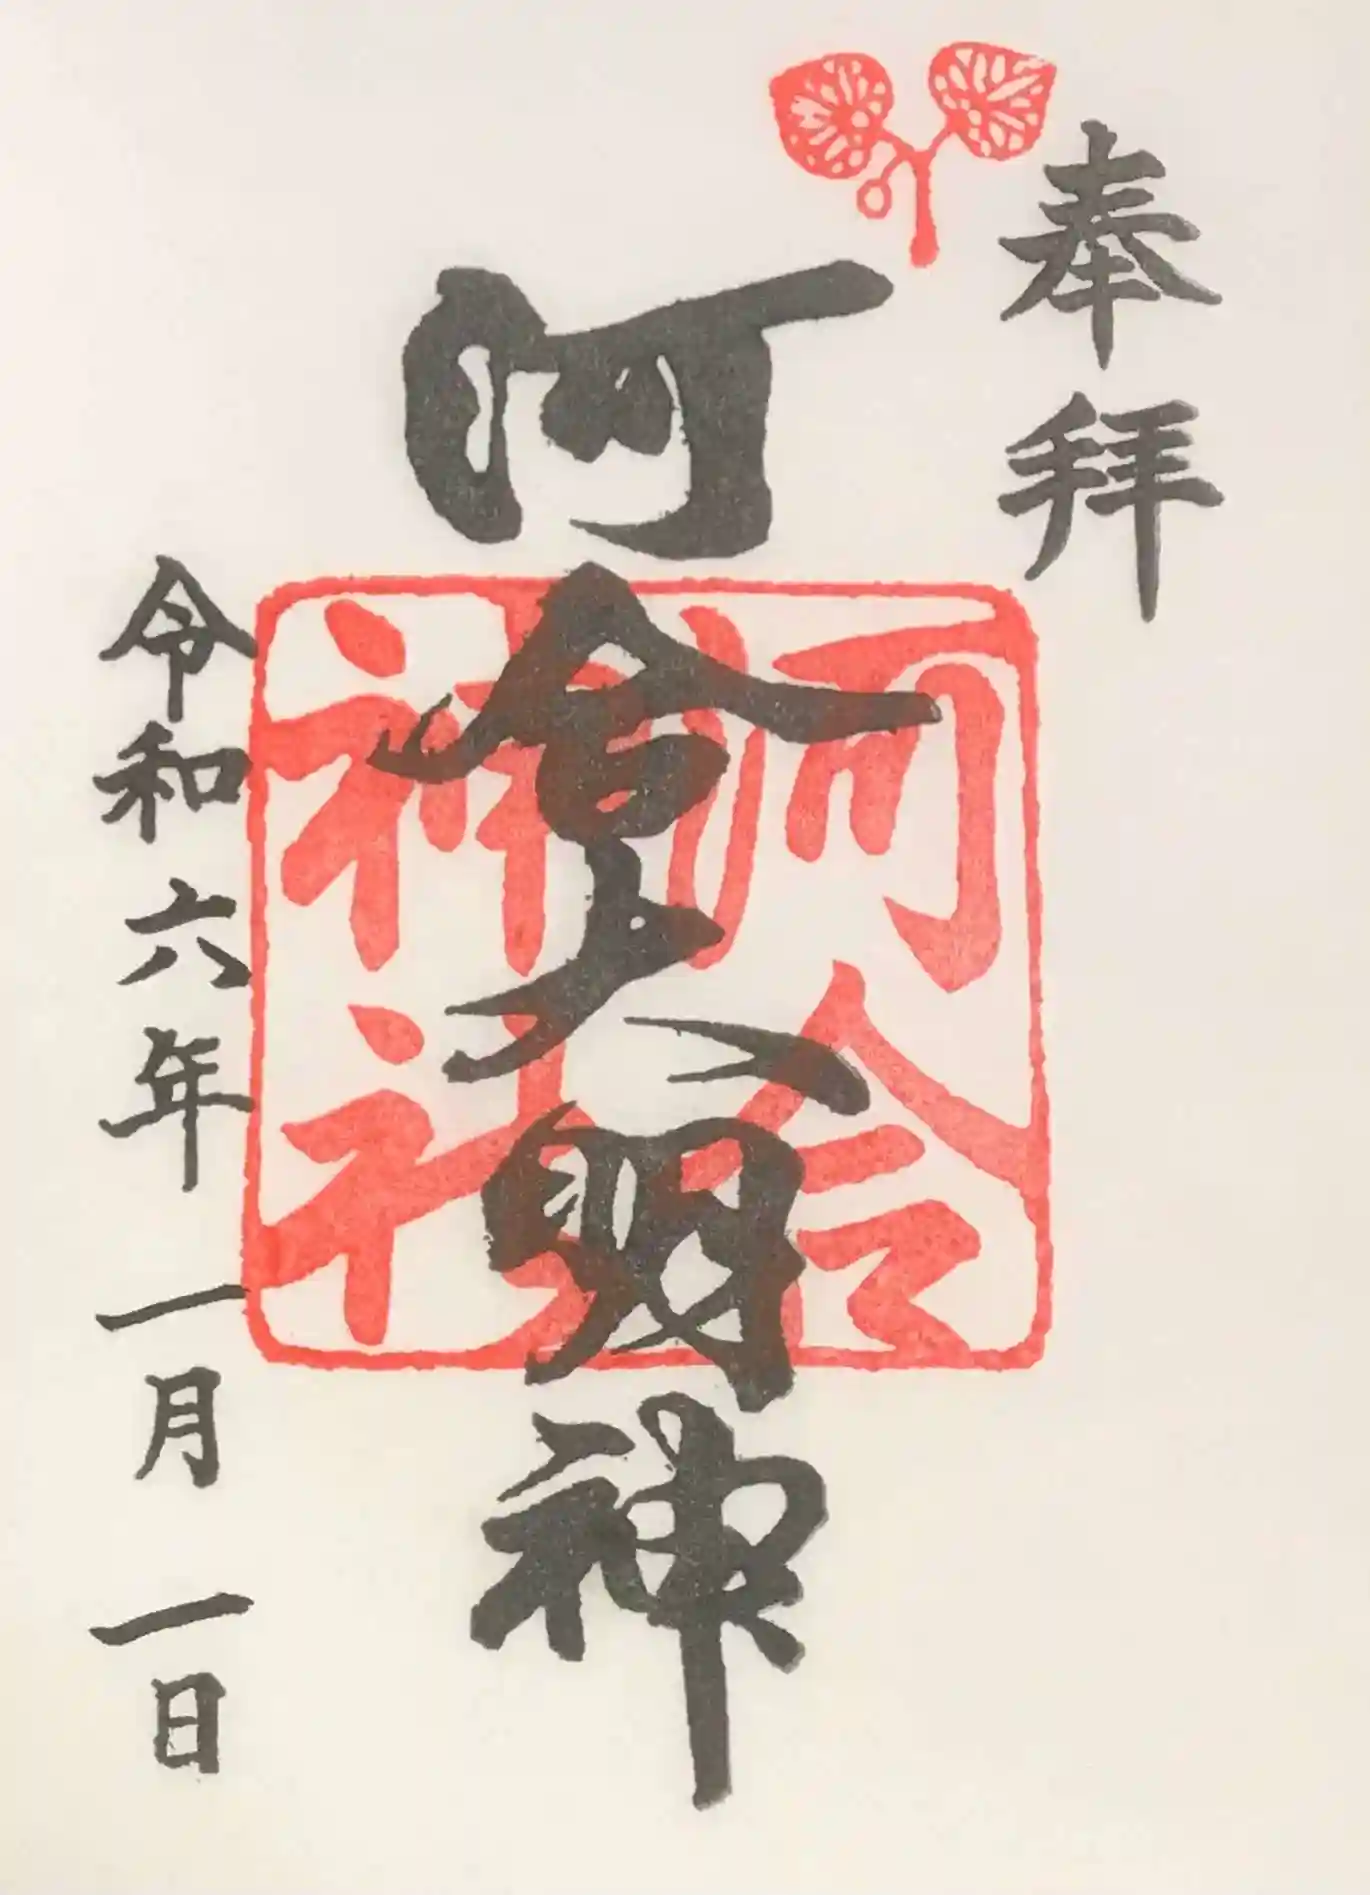 奉拝
河合大明神
河合
神社
令和六年一月一日